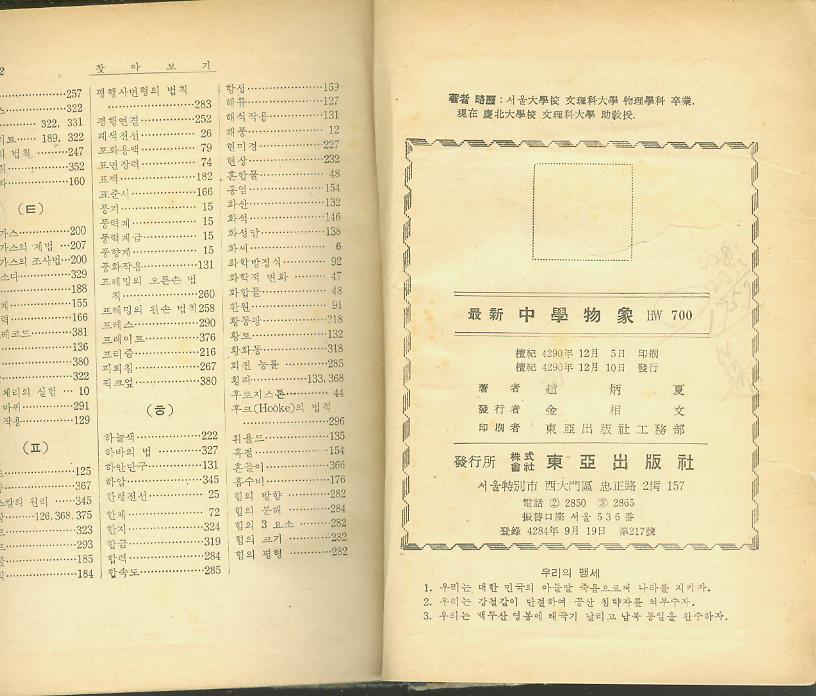 2
찾아보기
257
322
322, 331
리트 189, 322
의 법칙 247
352
160
(ㅌ)
가스 200
가스의 제법 207
가스의 조사법 200
소다 329
188
155
력 166
레코드 381
136
380
322
체리의 실험 10
바퀴 291
작용 129
(ㅍ)
125
367
스칼의 원리 345
126, 368, 375
323
293
185
184
평행사변형의 법칙
283
평행연결 252
폐색전선 26
포화용액 79
표면장력 74
표백 182
표준시 166
풍기 15
풍력계 15
풍력계급 15
풍향계 15
풍화작용 131
프레밍의 오른손 법
칙 260
프레밍의 왼손 법칙 258
프레스 290
프레이트 376
프리즘 216
피뢰침 267
픽크엎 380
(ㅎ)
하늘색 222
하바의 법 327
하안단구 131
하압 345
한랭전선 25
한제 72
한지 324
합금 319
합력 284
합속도 285
합성 159
해류 127
해식작용 131
해풍 12
현미경 227
현상 232
혼합물 48
홍염 154
화산 132
화석 146
화성암 138
화씨 6
화학방정식 92
화학적 변화 47
화합물 48
환원 91
황동광 318
황토 132
황화동 318
회전 능률 285
횡파 133, 368
후로지스톤 44
후크(Hooke)의 법칙
296
휘율드 135
흑점 154
흔들이 366
흡수비 176
힘의 방향 282
힘의 분해 284
힘의 3 요소 282
힘의 크기 282
힘의 평형 282
著者 略歷 : 서울大學校 文理科大學 物理學科 卒業.
現在 慶北大學校 文理科大學 助敎授.
最新 中學物象 HW 700
檀紀 4290年 12月 5日 印刷
檀紀 4290年 12月 10日 發行
著者 趙炳夏
發行者 金相文
印刷者 東亞出版社工務部
發行所 株式會社 東亞出版社
서울特別市 西大門區 忠正路 2街 157
電話 ② 2850 ③ 2865
振替口座 서울 536番
登錄 4284年 9月 19日 第217號
우리의 맹세
1. 우리는 대한 민국의 아들딸 죽음으로써 나라를 지키자.
2. 우리는 강철같이 단결하여 공산 침략자를 쳐부수자.
3. 우리는 백두산 영봉에 태극기 날리고 남북 통일을 완수하자.